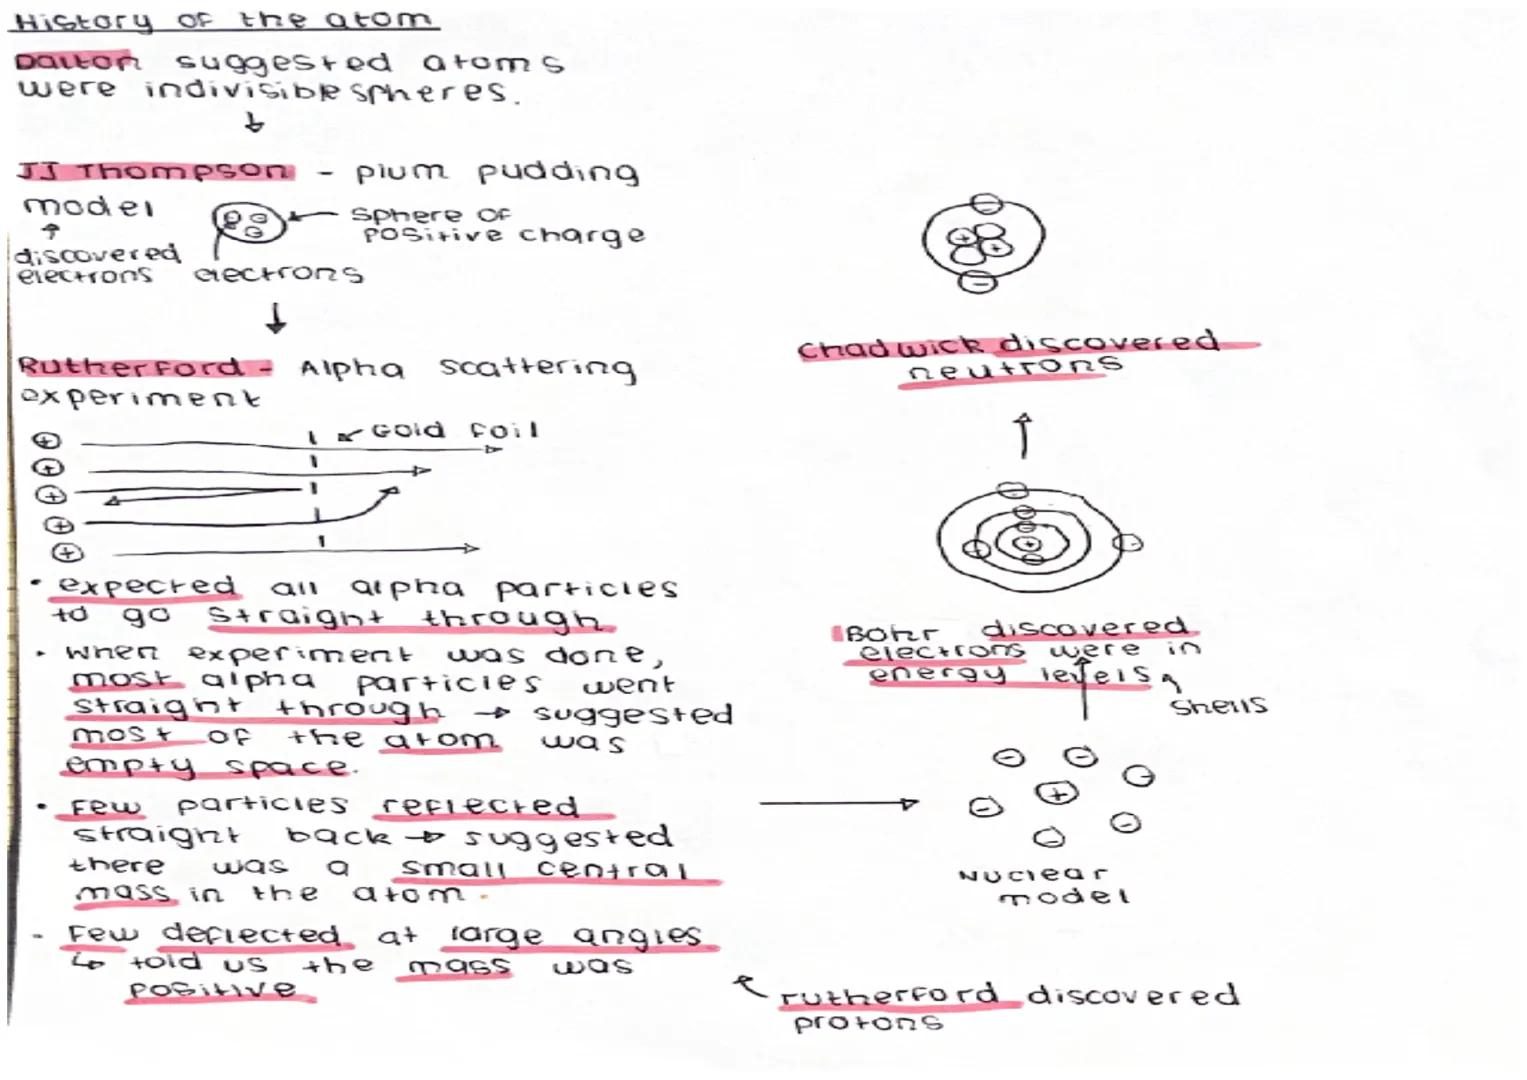 History of the atom
Dalton suggested atoms
were indivisible spheres.
↓
JJ Thompson - plum pudding
model
↑
discovered
electrons
electrons
sphere of
positive charge
↓
Rutherford - Alpha scattering
experiment
Gold foil
+
+
+
+
+
• expected all alpha particles
to go straight through
• when experiment was done,
most alpha particles went
straight through → suggested
most of the atom was
empty space.
• Few particles reflected
straight back → suggested
there was a small central
mass in the atom.
- Few deflected at large angles
↳ told us the mass was
positive
rutherford discovered
protons
Nuclear
model
Bohr discovered
electrons were in
energy levels
shells
Chadwick discovered
neutrons